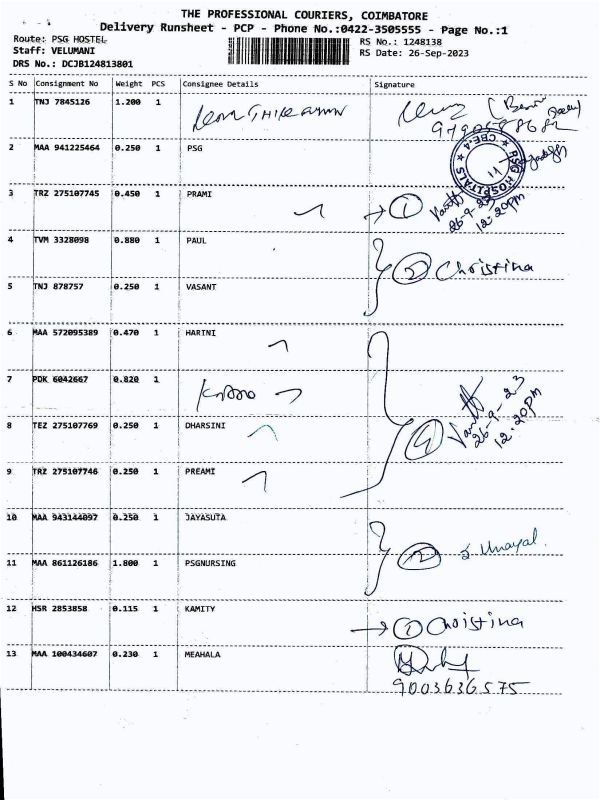 THE PROFESSIONAL COURIERS, COIMBATORE
Delivery Runsheet - PCP - Phone No.:0422-3505555 - Page No.:1
Route: PSG HOSTEL RS No.: 1248138
Staff: VELUMANI RS Date: 26-Sep-2023
DRS No.: DCJB124813801
S No Consignment No Weight PCS Consignee Details Signature
1 TNJ 7845126 1.200 1
2 MAA 941225464 0.250 1 PSG
PSG HOSPITALS CBE.4
3 TRZ 275107745 0.450 1 PRAMI 1
26-9-23
12.20pm
4 TVM 3328098 0.880 1 PAUL
2 Christina
5 TNJ 878757 0.250 1 VASANT
6 MAA 572095389 0.470 1 HARINI
7 PDK 6042667 0.820 1
26-9-23
12.20pm
8 TEZ 275107769 0.250 1 DHARSINI 4
9 TRZ 275107746 0.250 1 PREAMI
10 MAA 943144097 0.250 1 JAYASUTA
2 S. Unayal.
11 MAA 861126186 1.800 1 PSGNURSING
12 HSR 2853858 0.115 1 KAMITY 1 Christina
13 MAA 100434607 0.230 1 MEAHALA
9003636575